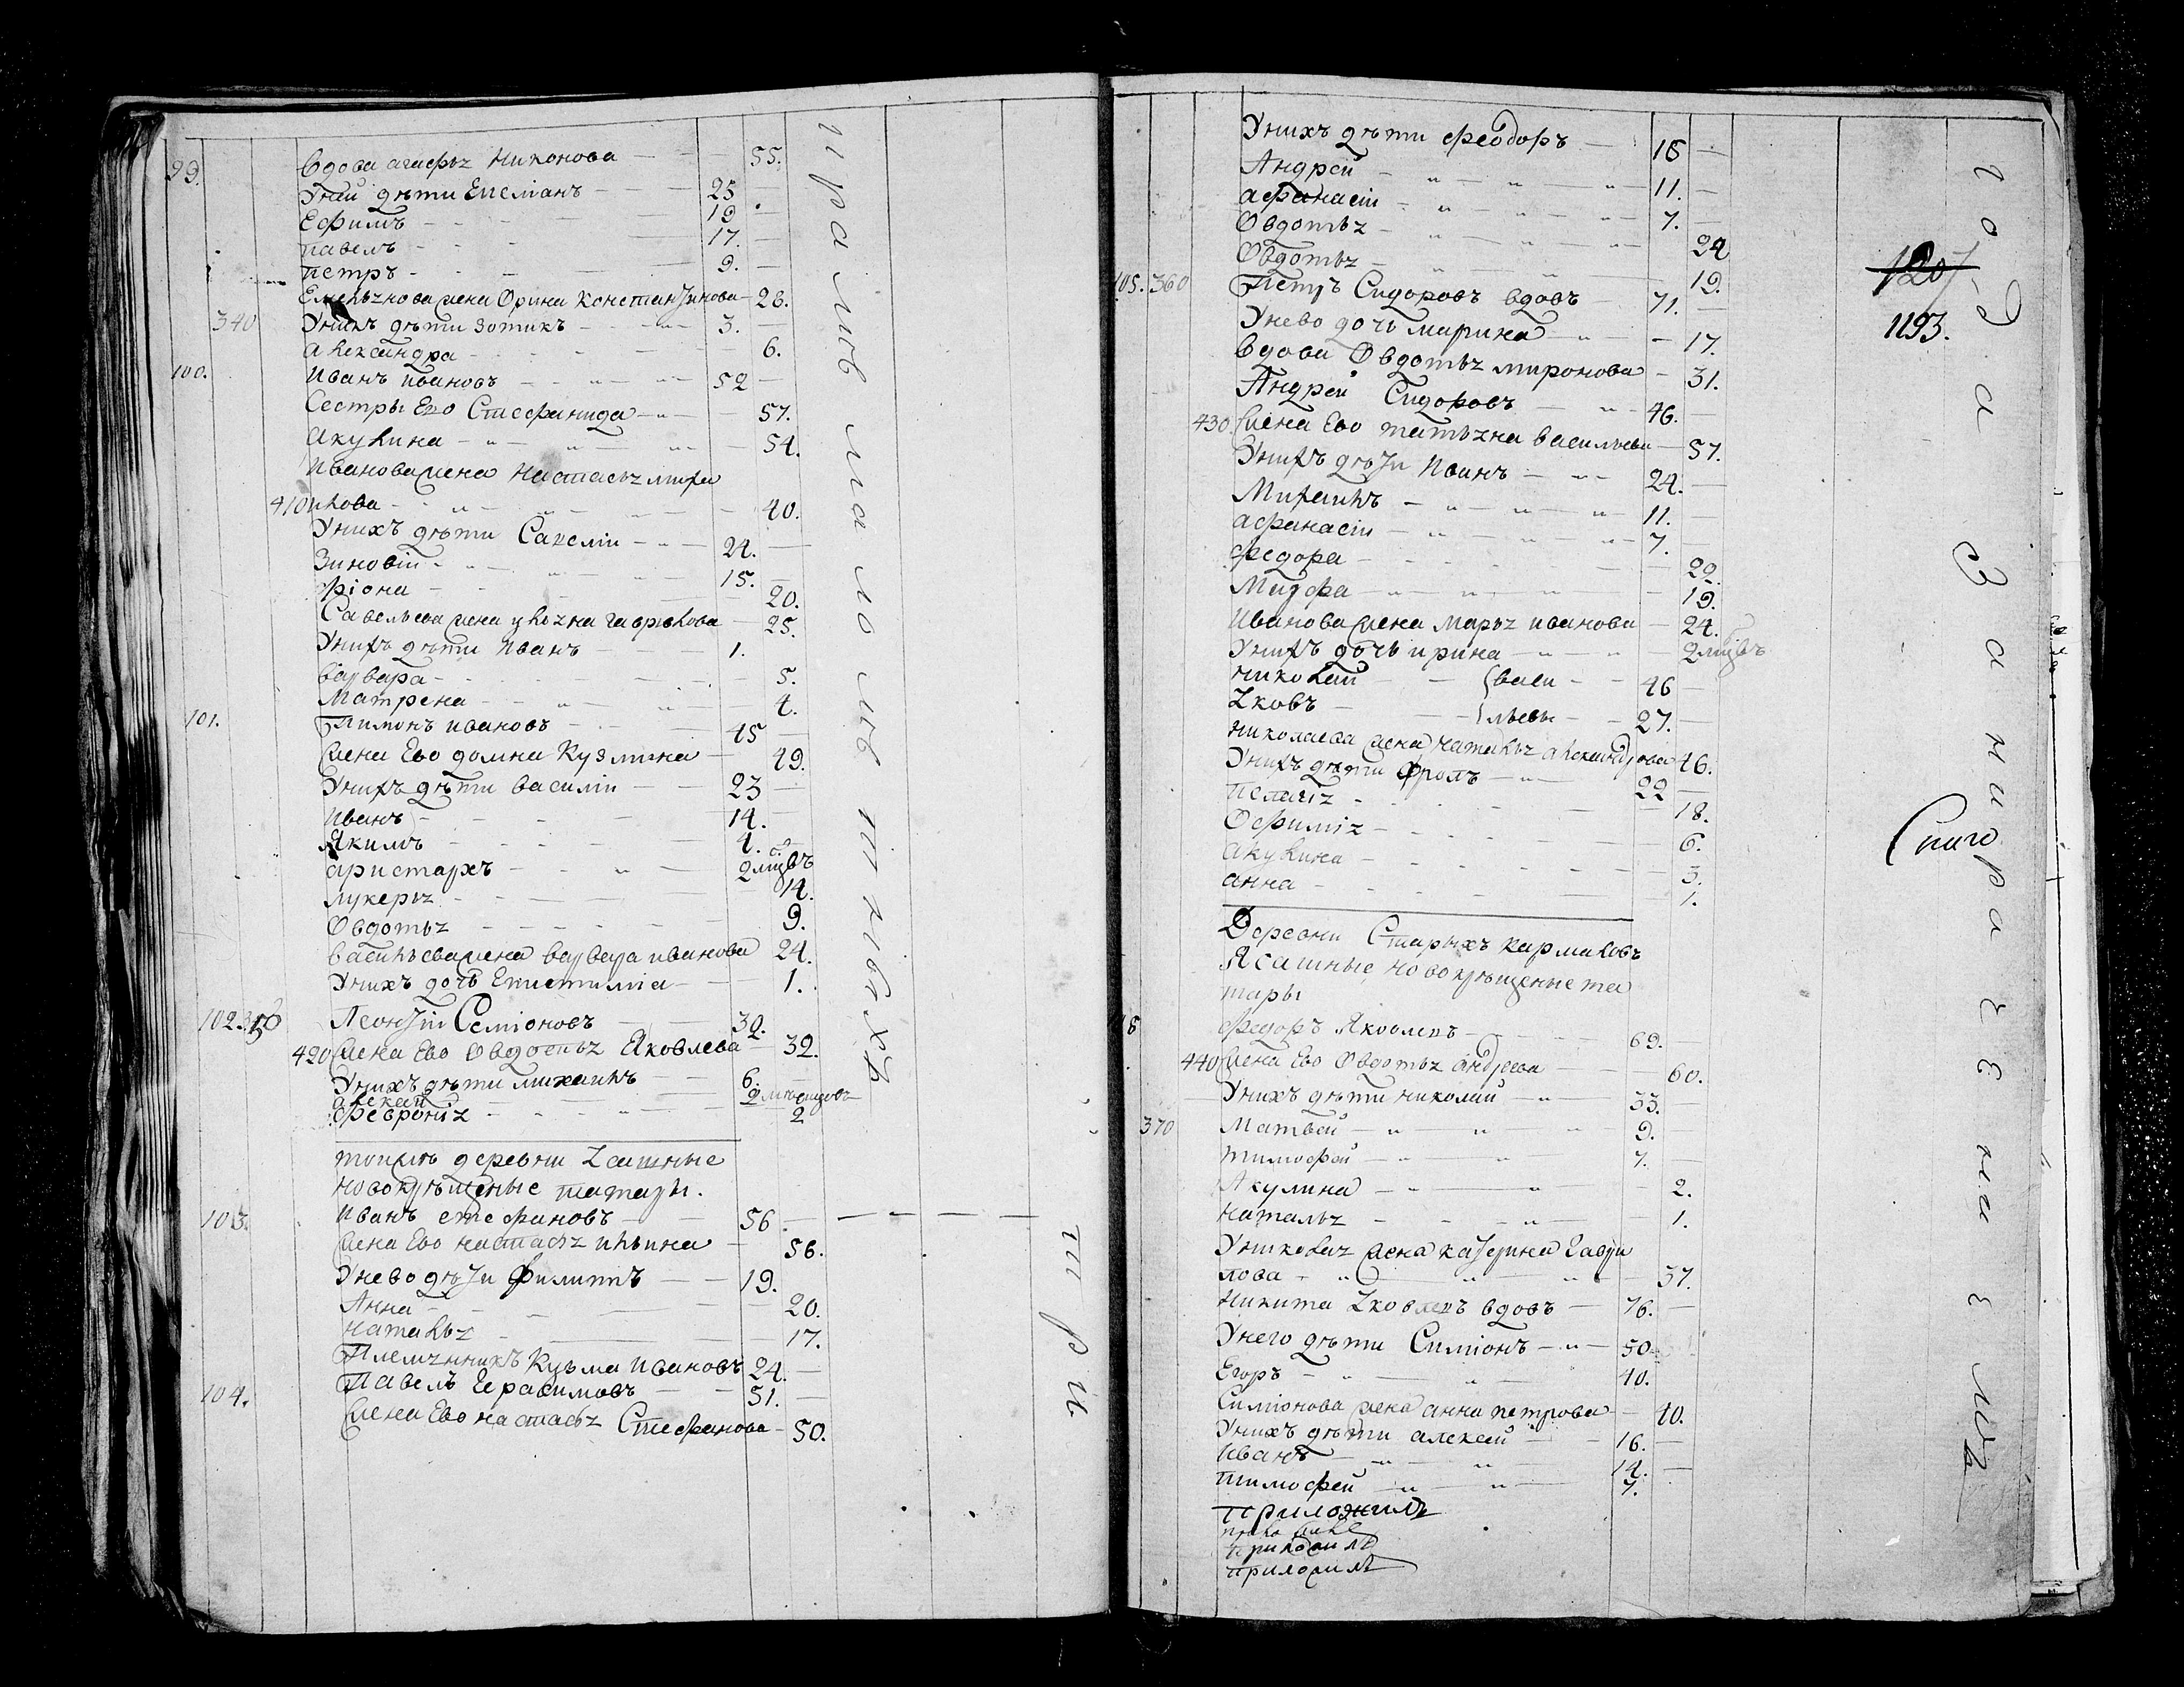 99. Вдова агафья Никонова 55.
Унай дѣти Емелианъ 25
Ефимъ 19
павелъ 17.
петръ 9.
Емельянова жена Орина константинова 26.
340 Унихъ дѣти зотикъ 3.
александра 6.
100. Иванъ ивановъ 52
Сестры Ево Стефанида 57.
акулина 54.
Иванова жена Настасья михаи
410 илова 40.
Унихъ дѣти Савелiи 24.
Зиновiи 15.
фiона 20.
Савельева жена улияна гаврилова 25.
Унихъ дѣти иванъ 1.
варвара 5.
Матрена 4.
101. Тимонъ ивановъ 45
жена Ево домна Кузмина 49.
Унихъ дѣти василiи 23
Иванъ 14.
Якимъ 4.
аристархъ 2 мцвъ
лукерья 14.
Овдотья 9.
васильева жена варвара иванова 24.
Унихъ дочь Епистимiа 1.
102. 350 Леонтiи Семiоновъ 30.
420 жена Ево Овдотья Яковлева 32.
Унихъ дѣти михаилъ 6.
алексей 2 месяцовъ
февронiя 2
тоижъ деревни ясашные
новокрѣщеные татары.
103. Иванъ стефановъ 56
жена Ево настасья ильина 56.
Унево дѣти Филиппъ 19.
Анна 20.
наталья 17.
Племянникъ Кузма ивановъ 24.
104. Павелъ Герасимовъ 51.
жена Ево настасья Стефанова 50.
три
Унихъ дѣти феодоръ 15
Андреи 11.
афанасiи 7.
Овдотья 24
Овдотья 19.
105. 360 Петръ Сидоровъ вдовъ 71.
Унево дочь марина 17.
вдова Овдотья миронова 31.
Андреи Сидоровъ 46.
430 жена Ево татьяна васильева 57.
Унихъ дѣти Иванъ 24.
Михаилъ 11.
афанасiи 7.
федора 22.
19.
Иванова жена марья иванова 24.
Унихъ дочь ирина 2 мцвъ
николай васи 46
яковъ льевы 27.
николаева жена наталья александрова 46.
Унихъ дѣти Фролъ 22
пелагiя 18.
Офимiя 6.
акулина 3.
анна 1.
Деревни Старыхъ кармаловъ
Ясашные новокрѣщеные та
тары
федоръ Яковлевъ 69.
440 жена Ево Овдотья андреева 60.
Унихъ дѣти николаи 33.
370 Матвеи 9.
тимофеи 7.
Акулина 2.
наталья 1.
Униколая жена катерина гаври
лова 37.
Никита яковлевъ вдовъ 76.
Унего дѣти Симiонъ 50.
Егоръ 40.
Симiонова жена анна петрова 40.
Унихъ дѣти алексеи 16.
Иванъ 14.
тимофеи 7.
приложилъ
приложилъ
1207
1193.
года